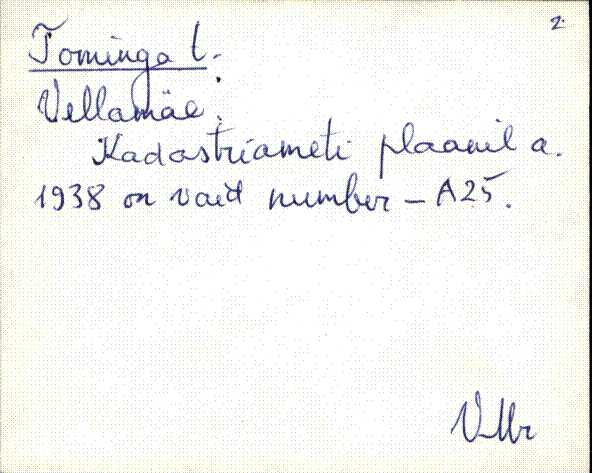 2.
Toominga t.
Vellamäe.
Kadastriameti plaanil a.
1938 on vaid number – A25.
VMr